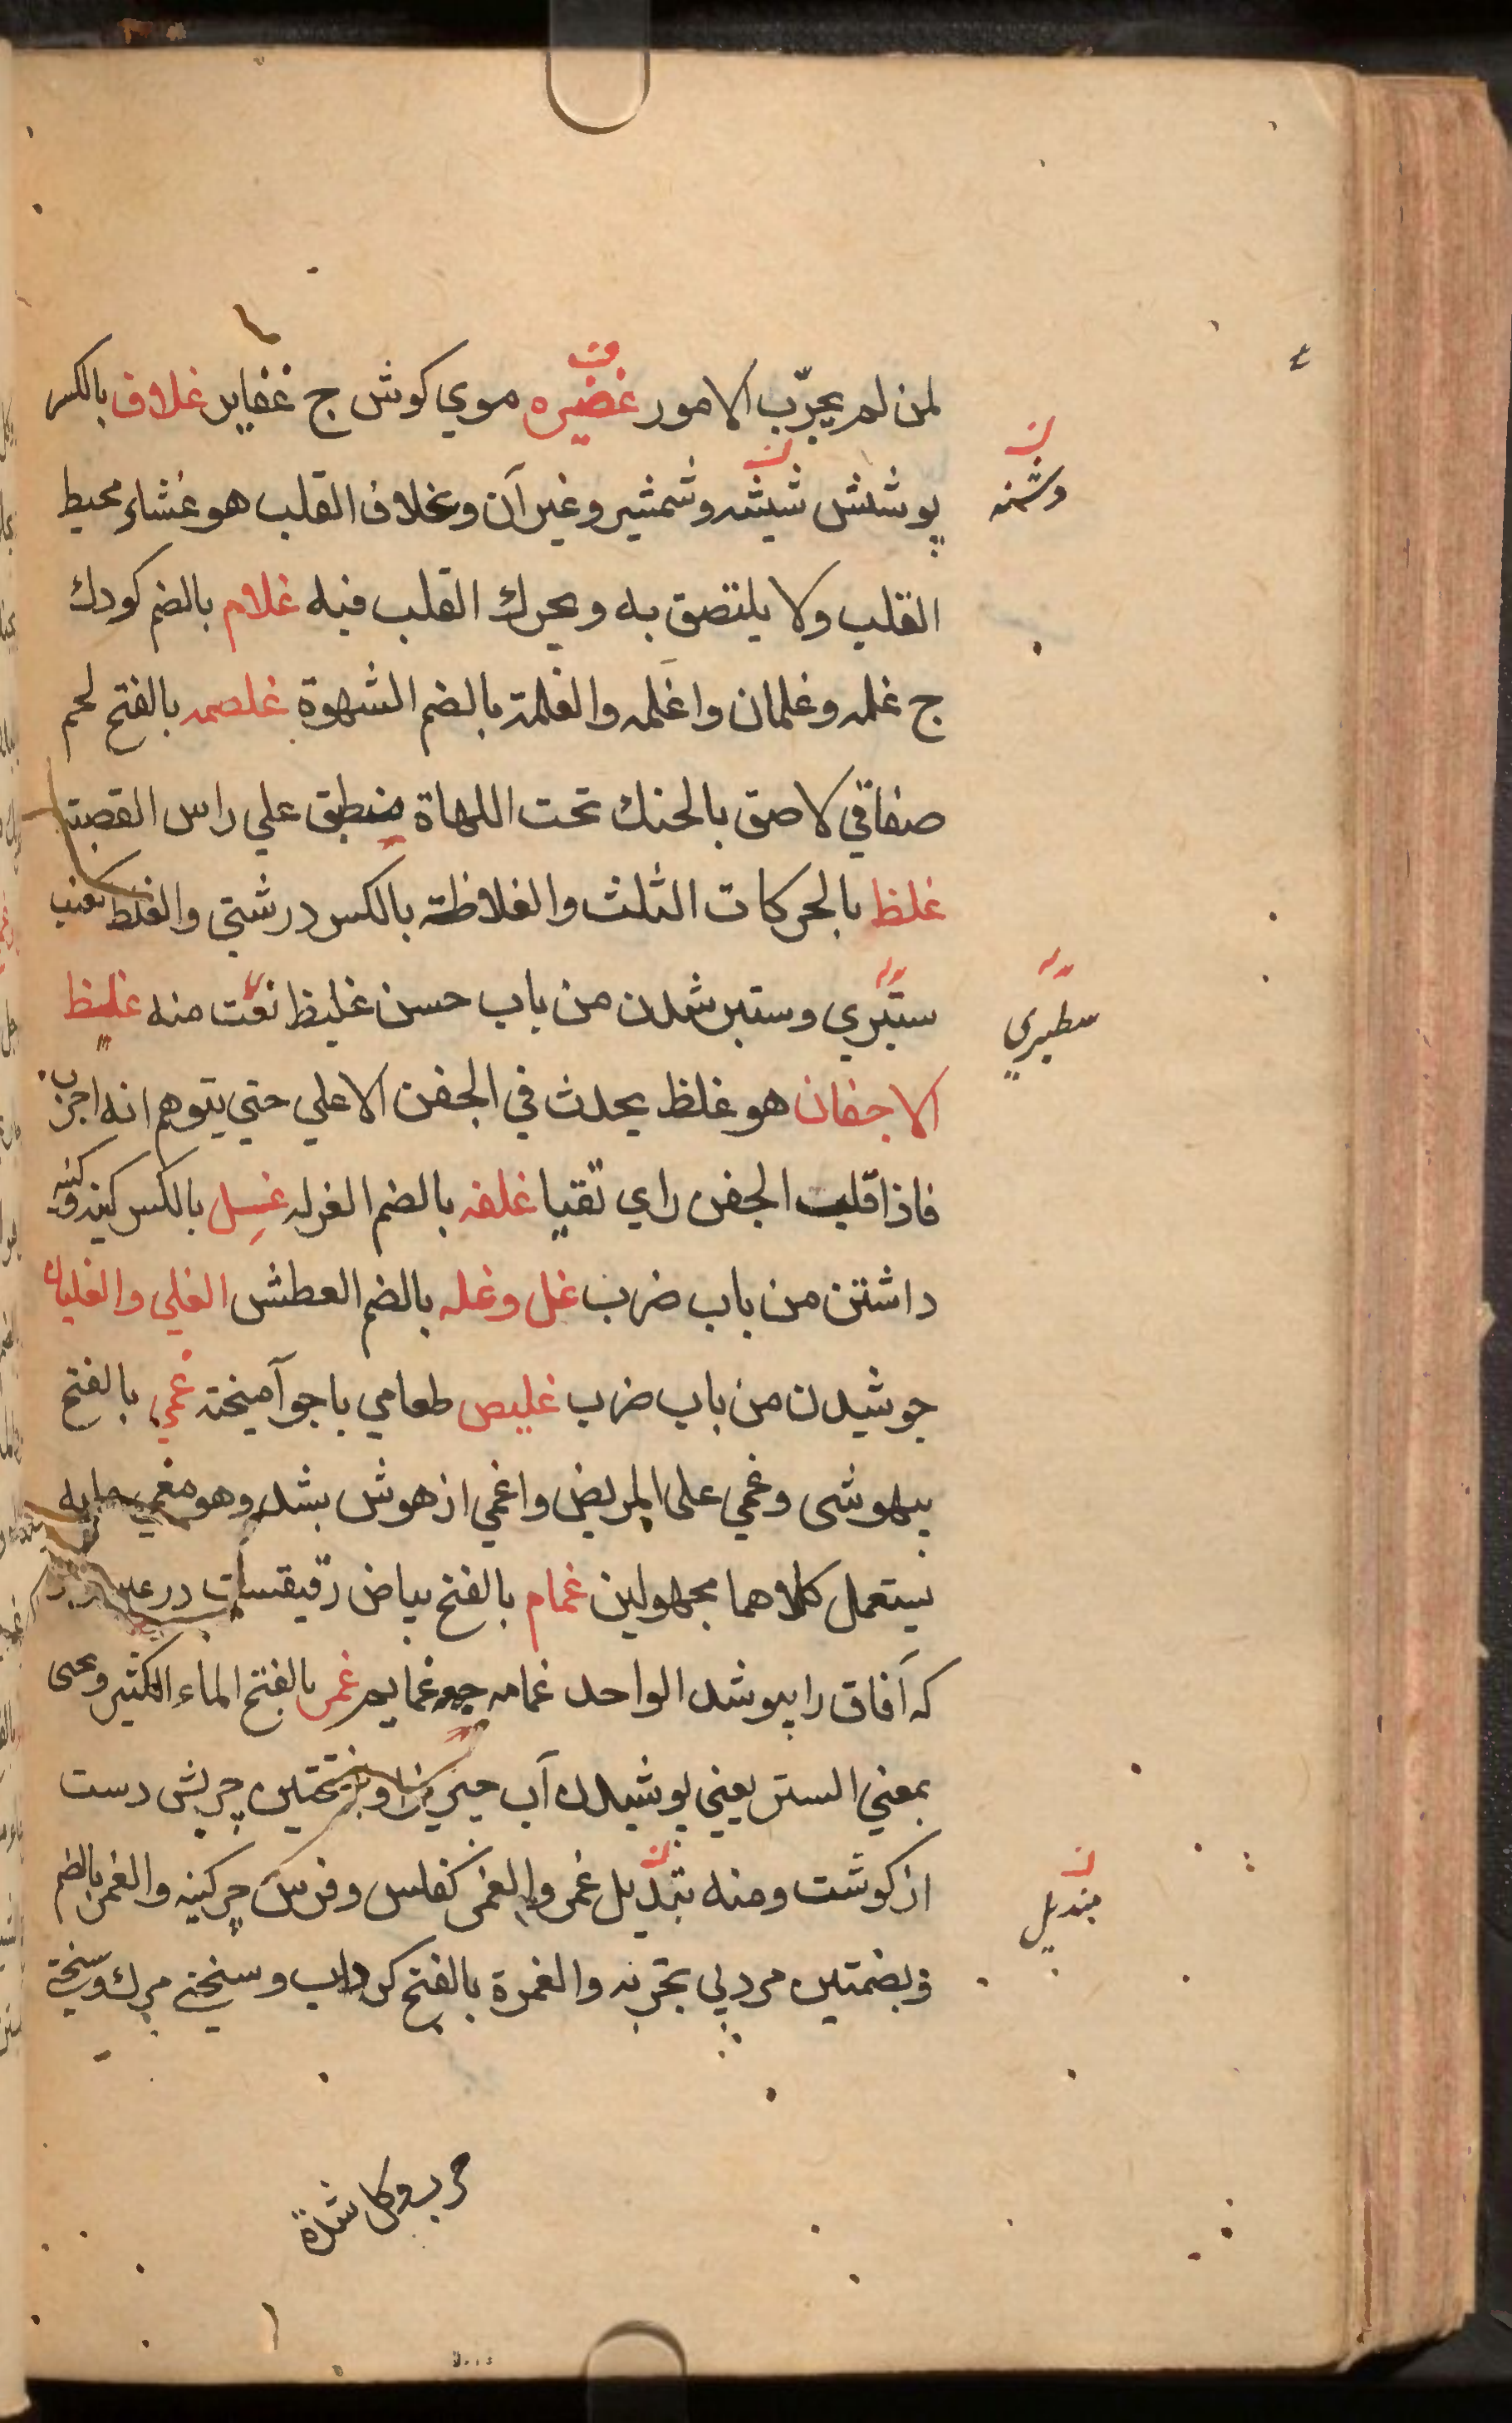 لمن لم يجرّب الامور غضيره موي كوش ج غفاير غلاف بالكسر
پوشش شيشه وشمشير وغير آن وغلاف القلب هو غشاء محيط
وشنه
القلب ولا يلتصق به ويحرك القلب فيه غلام بالضم كودك
ج غلمه وغلمان واغلمه والغلمة بالضم الشهوة غلصمه بالفتح لحم
صفاقي لاصق بالحنك تحت اللهاة منطبق علي راس القصبة
غلظ بالحركات الثلث والغلاظة بالكسر درشتي والغلظ كعنب
ستبري وستبر شدن من باب حسن غليظ نعت منه غليظ
سطبري
الاجفان هو غلظ يحدث في الجفن الاعلي حتي يتوهم انه اجرب
فاذا قلبت الجفن راي نقيا غلفه بالضم الغرله غسل بالكسر كينه وكينه
داشتن من باب ضرب غل وغله بالضم العطش الغلي والغليان
جوشيدن من باب ضرب غليص طعامي باجو آميخته غمي بالفتح
بيهوشى وغمي على المريض واغمي از هوش بشد وهو مغمي
يستعمل كلاهما مجهولين غمام بالفتح بياض رقيقست در
كه آفاق را بپوشد الواحد غمامه ج غمايم غمر بالفتح الماء الكثير
بمعني الستر يعني پوشيدن آب چيزيرا وبفتحتين چربش دست
از كوشت ومنه بتديل غمر والغمر كفلس وفرس چركينه والغمر بالضم
منديل
وبضمتين مرد بي تجربه والغمرة بالفتح كرداب وسختي مرك وسختي